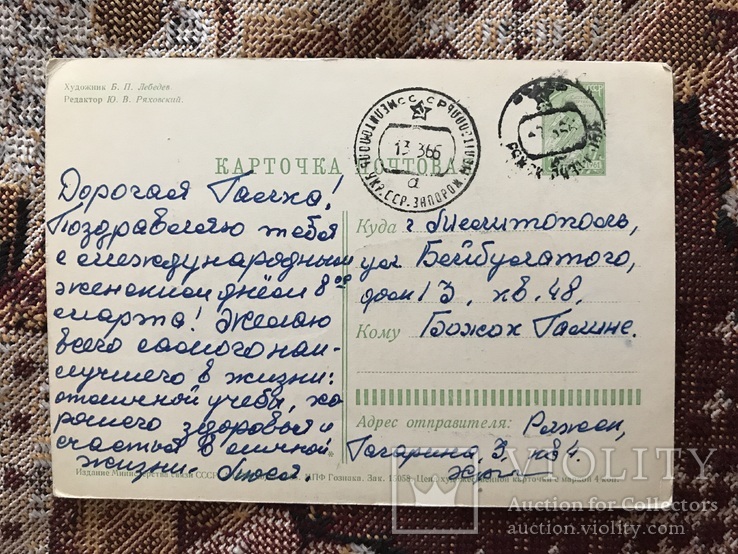 Художник Б. П. Лебедев
Редактор Ю. В. Ряховский.
КАРТОЧКА ПОЧТОВАЯ
МЕЛИТОПОЛЬ УКР.ССР. ЗАПОРОЖ.
13 366
а
Дорогая Галчка!
Поздравляю тебя
с международным
женским днём 8ое
марта! Желаю
всего самого наи-
лучшего в жизни:
отличной учебы, хо
рошего здоровья и
счастья в личной
жизни. Люся.
Куда г Мелитополь,
ул Бейбулатого,
дом 13, кв. 48.
Кому Божок Галине.
Адрес отправителя: Ряжск,
Гагарина, 3, кв 4.
Издание Министерства связи СССР
МПФ Гознака. Зак. 15059. Цена художественной карточки с маркой 4 коп.
VIOLITY
Auction for Collectors
auction.violity.com